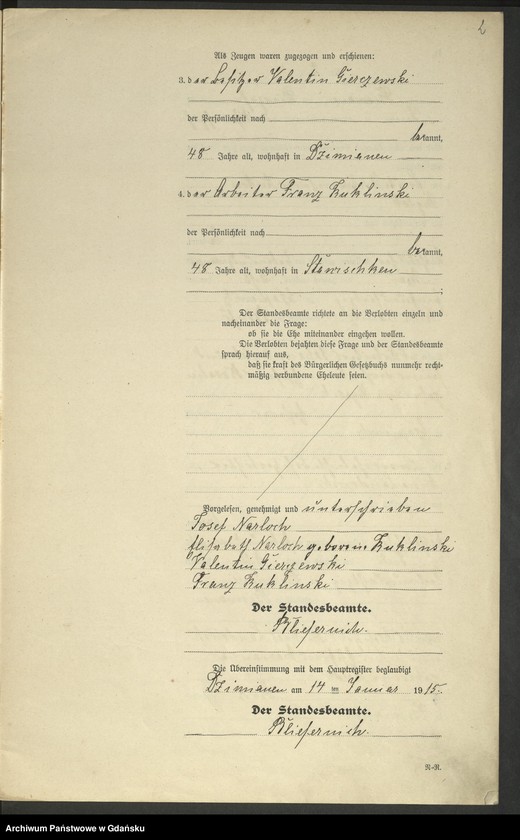 2
Als Zeugen waren zugezogen und erschienen:
3. der Besitzer Valentin Gierczewski
der Persönlichkeit nach
bekannt,
48 Jahre alt, wohnhaft in Dzimianen
4. der Arbeiter Franz Kuklinski
der Persönlichkeit nach
bekannt,
48 Jahre alt, wohnhaft in Stawischken
;
Der Standesbeamte richtete an die Verlobten einzeln und
nacheinander die Frage:
ob sie die Ehe miteinander eingehen wollen.
Die Verlobten bejahten diese Frage und der Standesbeamte
sprach hierauf aus,
daß sie kraft des Bürgerlichen Gesetzbuchs nunmehr recht-
mäßig verbundene Eheleute seien.
Vorgelesen, genehmigt und unterschrieben
Josef Narloch
Elisabeth Narloch geborene Kuklinski
Valentin Gierczewski
Franz Kuklinski
Der Standesbeamte.
Kliefernich.
Die Übereinstimmung mit dem Hauptregister beglaubigt
Dzimianen am 14 ten Januar 1915.
Der Standesbeamte.
Kliefernich.
N-R.
Archiwum Państwowe w Gdańsku